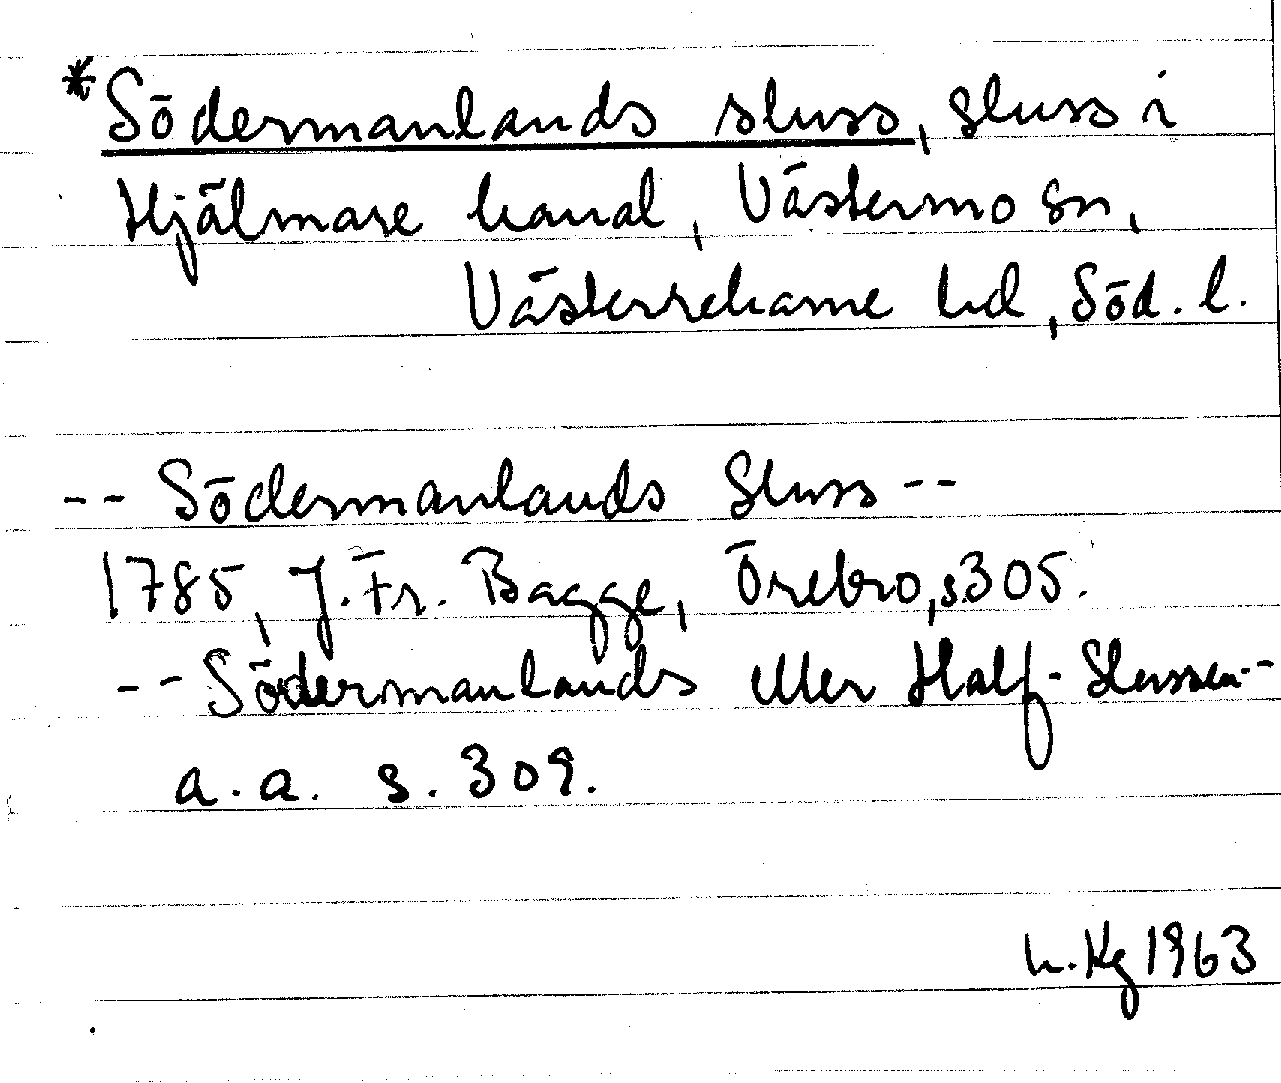 *Södermanlands sluss, sluss i
Hjälmare kanal, Västermo sn,
Västerrekarne hd, Söd. l.
-- Södermanlands Sluss --
1785, J. Fr. Bagge, Örebro, s305.
-- Södermanlands eller Half-Slussen--
a.a. s. 309.
Kg 1963